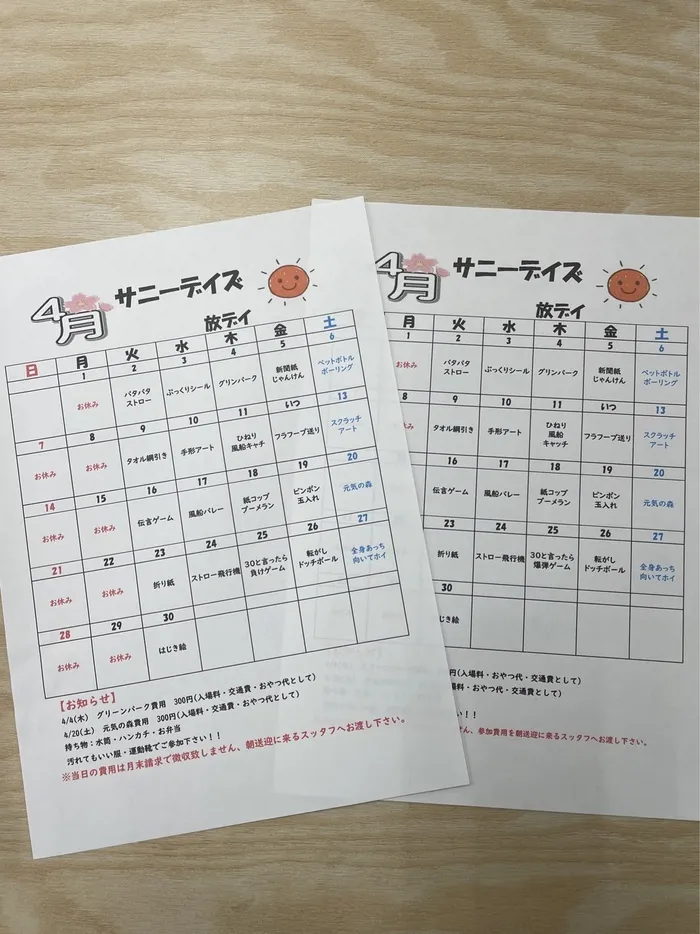 4月
サニーデイズ
放デイ
日 月 火 水 木 金 土
1 2 3 4 5 6
お休み パタパタストロー ぷっくりシール グリンパーク 新聞紙じゃんけん ペットボトルボーリング
7 8 9 10 11 いつ 13
お休み お休み タオル綱引き 手形アート ひねり風船キャチ フラフープ送り スクラッチアート
14 15 16 17 18 19 20
お休み お休み 伝言ゲーム 風船バレー 紙コップブーメラン ピンポン玉入れ 元気の森
21 22 23 24 25 26 27
お休み お休み 折り紙 ストロー飛行機 30と言ったら負けゲーム 転がしドッチボール 全身あっち向いてホイ
28 29 30
お休み お休み はじき絵
【お知らせ】
4/4(木) グリーンパーク費用 300円(入場料・交通費・おやつ代として)
4/20(土) 元気の森費用 300円(入場料・交通費・おやつ代として)
持ち物：水筒・ハンカチ・お弁当
汚れてもいい服・運動靴でご参加下さい！！
※当日の費用は月末請求で徴収致しません、朝送迎に来るスッタフへお渡し下さい。
4月
サニーデイズ
放デイ
月 火 水 木 金 土
1 2 3 4 5 6
休み パタパタストロー ぷっくりシール グリンパーク 新聞紙じゃんけん ペットボトルボーリング
8 9 10 11 いつ 13
み タオル綱引き 手形アート ひねり風船キャッチ フラフープ送り スクラッチアート
16 17 18 19 20
伝言ゲーム 風船バレー 紙コップブーメラン ピンポン玉入れ 元気の森
23 24 25 26 27
折り紙 ストロー飛行機 30と言ったら爆弾ゲーム 転がしドッチボール 全身あっち向いてホイ
30
じき絵
円(入場料・交通費・おやつ代・交通費として)
料・おやつ代・交通費として)
い！！
ん、参加費用を朝送迎に来るスッタフへお渡し下さい。